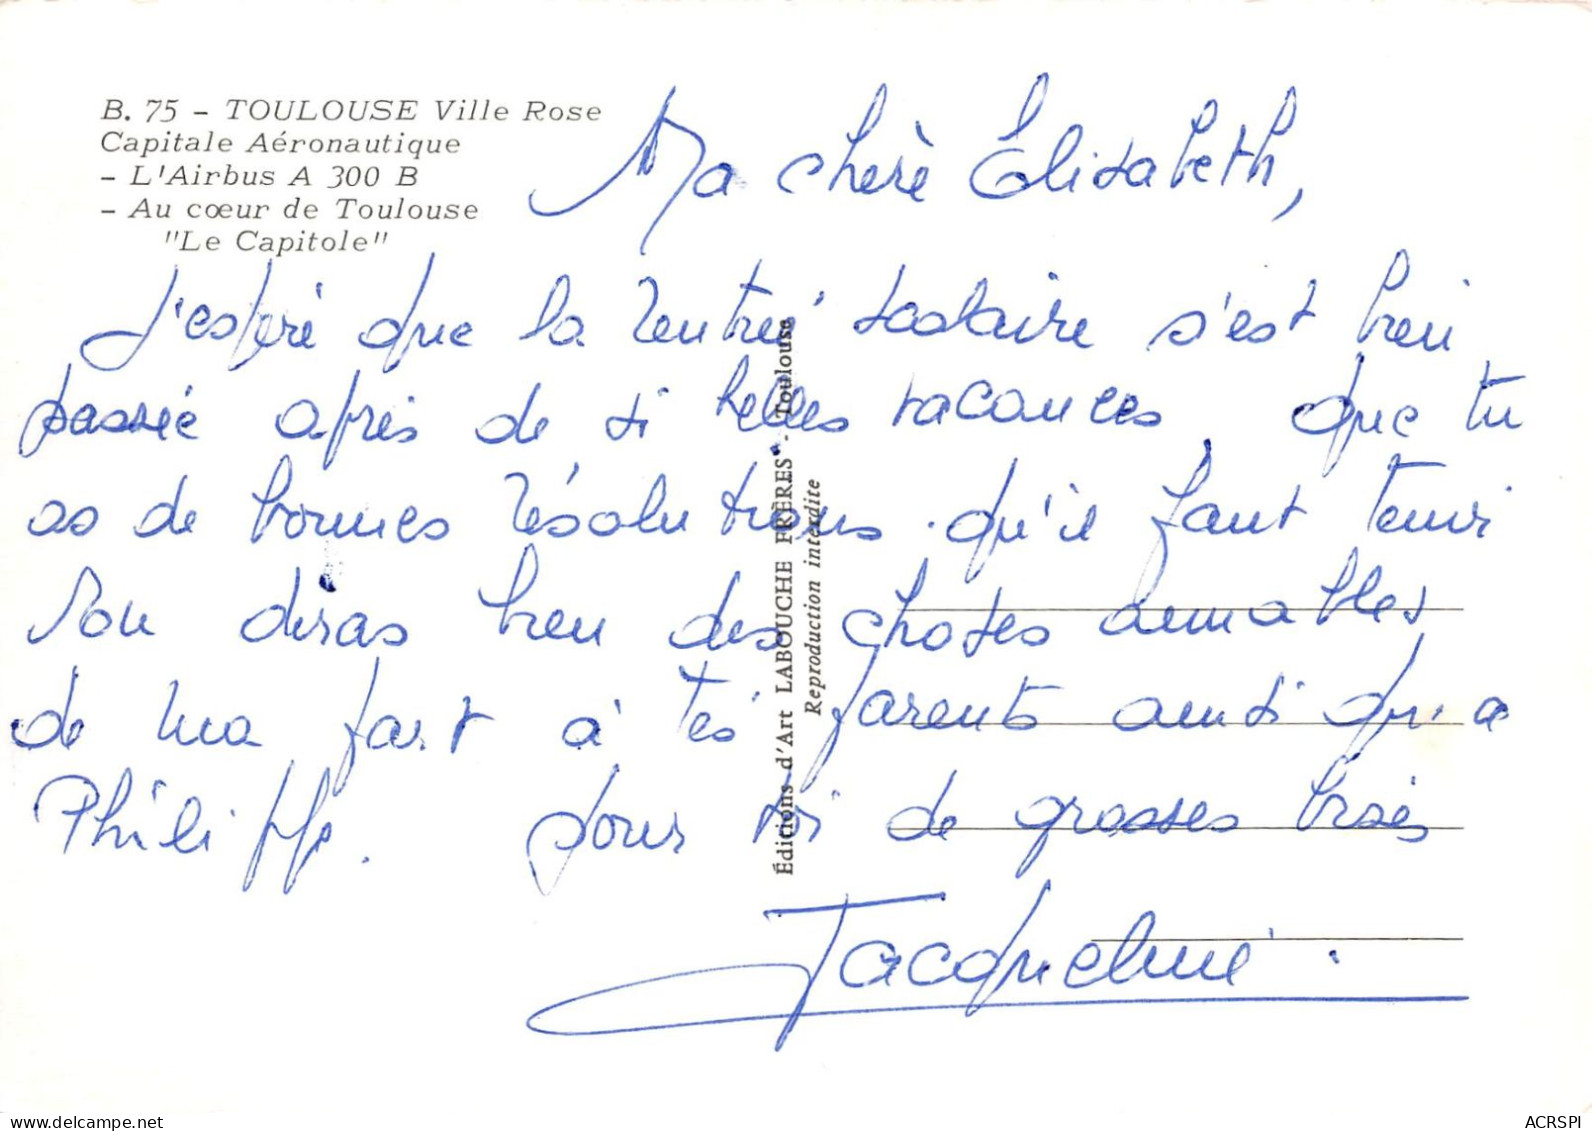 B. 75 - TOULOUSE Ville Rose
Capitale Aéronautique
- L'Airbus A 300 B
- Au cœur de Toulouse
"Le Capitole"
Ma chère Élisabeth,
J'espère que la rentrée scolaire s'est bien
passée après de si belles vacances, que tu
as de bonnes résolutions qu'il faut tenir
Tu diras bien des choses aimables
de ma part à tes parents ainsi qu'a
Philippe. Pour toi de grosses bises
Jacqueline.
Éditions d'Art LABOUCHE FRÈRES - Toulouse
Reproduction interdite
www.delcampe.net
ACRSPI